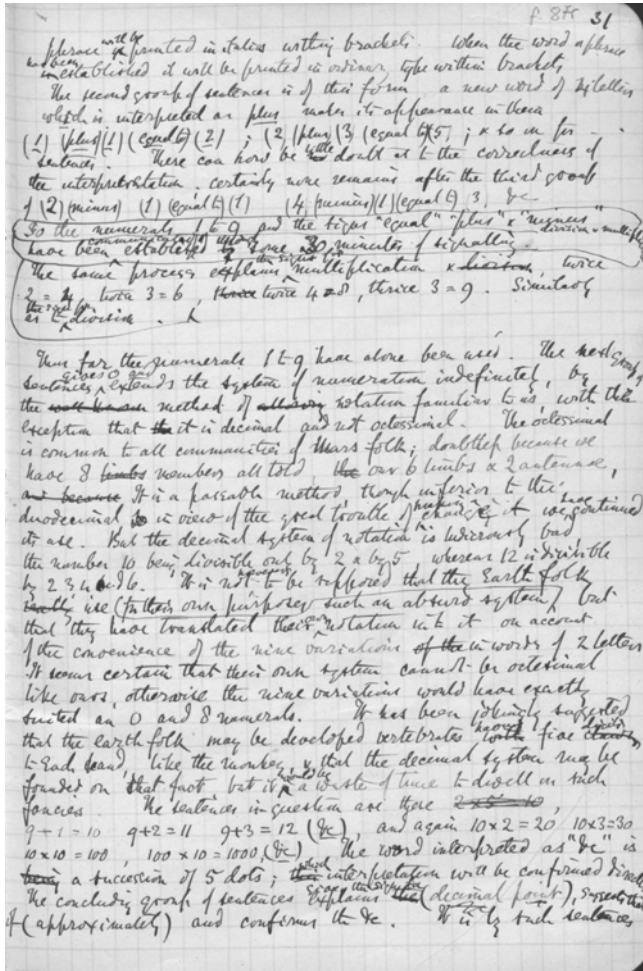 f. 87r 31
phrase will be printed in italics within brackets. When the word or phrase
has been established it will be printed in ordinary type within brackets
The second group of sentences is of this form a new word of letters
which is interpreted as plus makes its appearance in them
(1) (plus) (1) (equal to) (2) ; (2 (plus) (3 (equal to) (5 ; & so on for
sentences. There can now be little doubt as to the correctness of
the interpretation. certainly none remains after the third group
of (2) (minus) (1) (equal to) (1) (4 (minus) (1) (equal to) 3, &c
So the numerals 1 to 9 and the signs "equal" "plus" & "minus" division & multipli
have been established by some 30 minutes of signalling.
The same process explains the signs for multiplication & division, twice
2 = 4, twice 3 = 6, thrice twice 4 = 8, thrice 3 = 9. Similarly
the sign for
as to division.
Thus far the numerals 1 to 9 have alone been used. The next group of
sentences gives 0 and extends the system of numeration indefinitely, by
the well known method of notation familiar to us, with the
exception that it is decimal and not octesimal. The octesimal
is common to all communities of Mars folk; doubtless because we
have 8 limbs members all told our 6 limbs & 2 antennae,
and because It is a passable method, though inferior to the
duodecimal in view of the great trouble of making change in it we have continued
its use. But the decimal system of notation is ludicrously bad,
the number 10 being divisible only by 2 & by 5, whereas 12 is divisible
by 2 3 4 and 6. It is not however to be supposed that the Earth folk
really use (for their own purposes) such an absurd system, but
that they have translated their own notation into it on account
of the convenience of the nine variations of the in words of 2 letters
It seems certain that their own system cannot be octesimal
like ours, otherwise the nine variations would have exactly
suited an 0 and 8 numerals. It has been jokingly suggested
that the earth folk may be developed vertebrates having with five
to each hand, like the monkey, & that the decimal system may be
founded on that fact but it would be a waste of time to dwell on such
fancies. The sentences in question are these 2 x 5 = 10,
9+1 = 10 9+2 = 11 9+3 = 12 (&c), and again 10x2 = 20 10x3=30
10x10 = 100, 100 x 10 = 1000, (&c) The word interpreted as "&c" is
being a succession of 5 dots; which interpretation will be confirmed directly
The concluding group of sentences gives the signs for explains the (decimal point), suggests that
of (approximately) and confirms the &c. It is by such sentences